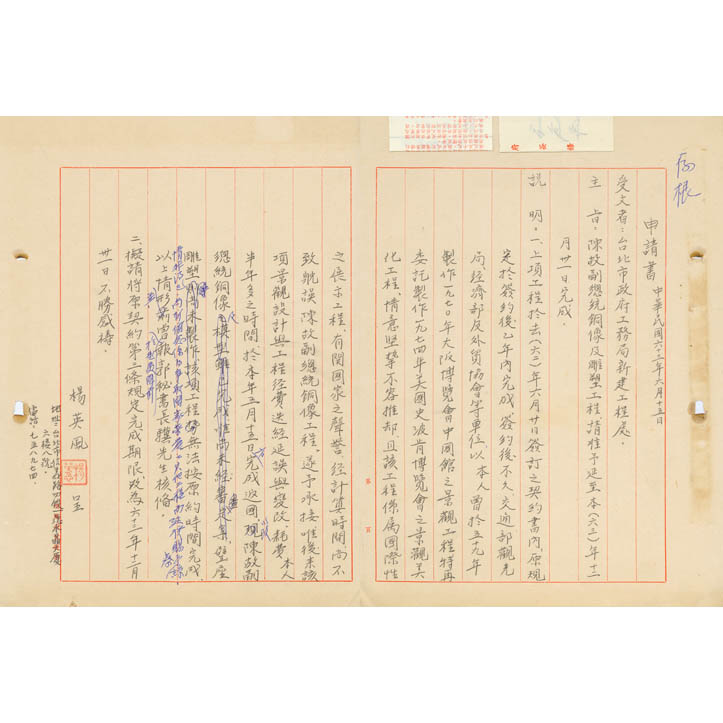 存根
申請書 中華民國六三年六月十五日
受文者：台北市政府工務局新建工程處。
主　旨：陳故副總統銅像及雕塑工程，請准予延至本(六三)年十二
月卅一日完成。
說　明：一、上項工程於去(六二)年六月廿日簽訂之契約書內，原規
定於簽約後乙年內完成。簽約後不久交通部觀光
局經濟部及外貿協會等單位，以本人曾於五九年
製作一九七〇年大阪博覽會中國館之景觀工程，特再
委託製作一九七四年美國史波肯博覽會之景觀美
化工程，情意堅摯不容推却，且該工程係屬國際性
之展示工程，有關國家之聲譽，經計算時間尚不
致耽誤陳故副總統銅像工程，遂予承接，唯後來該
項景觀設計與工程經費迭經延誤與變改，耗費本人
半年多之時間，於本年三月十五日完成返國，現陳故副
總統銅像模型雖已完成，惟尚未經審定，基座
雕塑尚未製作，該項工程勢無法按原約時間完成，
以上情形前曾報郭秘書長驥先生核備。
二、擬請將原契約第三條規定完成期限改為六十三年十二月
卅一日，不勝感禱。
楊英風　呈
地址：台北市信義路四段
六樓八號，
電話：七五八九七四，